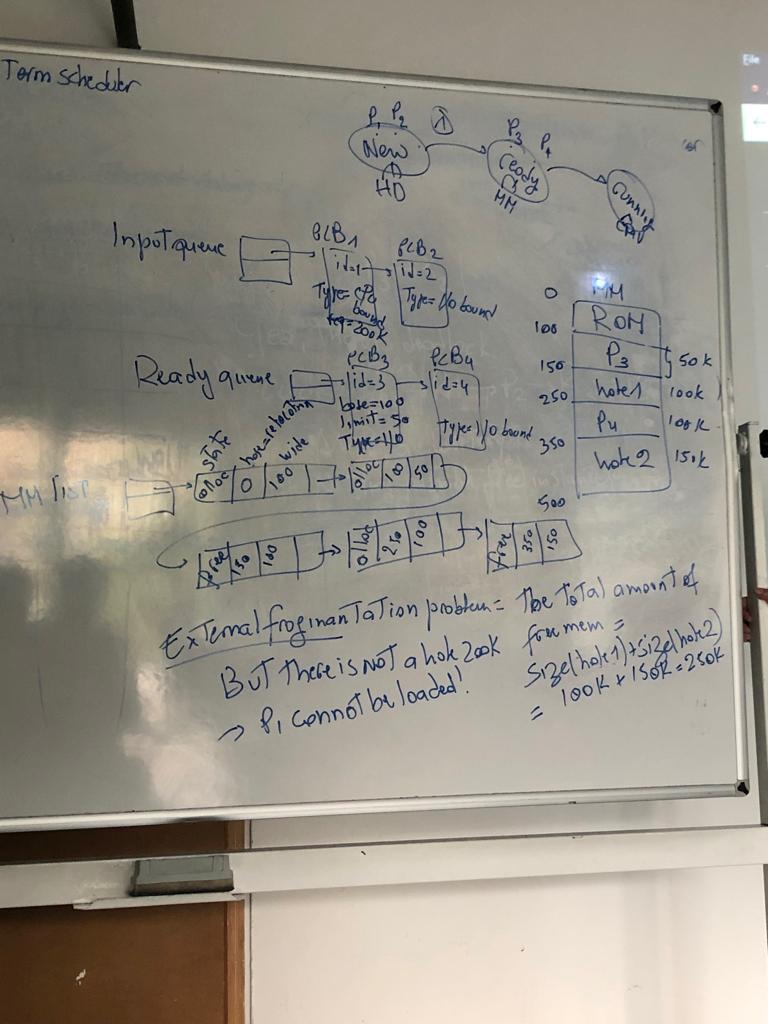 Term scheduler
P1 P2
New
HD
P3 P4
ready
MM
running
CPU
Input queue
PCB1
id=1
Type= CPU
bound
req=200k
PCB2
id=2
Type= I/O bound
Ready queue
PCB3
id=3
base=100
limit=50
Type=I/O
PCB4
id=4
Type= I/O bound
MM
0
ROM
100
P3
50k
150
hole1
100k
250
P4
100k
350
hole2
150k
500
MM list
state
base=relocation
wide
alloc 0 100
alloc 100 50
free 150 100
alloc 250 100
free 350 150
External fragmantation problem= The total amount of
free mem =
size(hole1)+size(hole2)
= 100k + 150k = 250k
But there is not a hole 200k
→ P1 cannot be loaded!
File